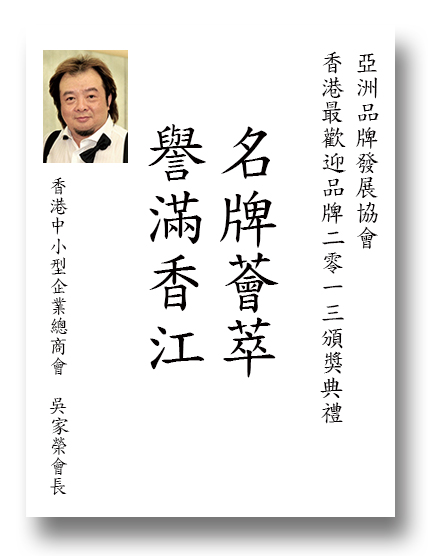 亞洲品牌發展協會
香港最歡迎品牌二零一三頒獎典禮
名牌薈萃
譽滿香江
香港中小型企業總商會 吳家榮會長